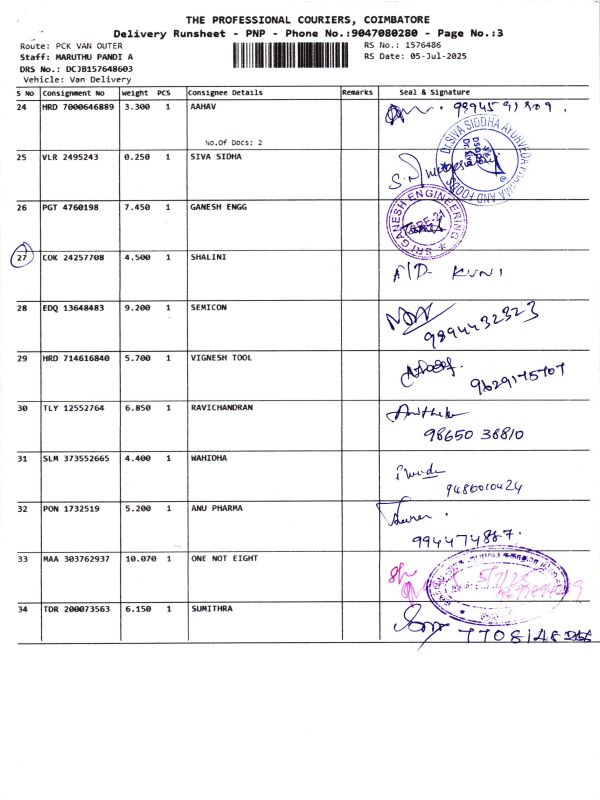 THE PROFESSIONAL COURIERS, COIMBATORE
Delivery Runsheet - PNP - Phone No.:9047080280 - Page No.:3
Route: PCK VAN OUTER RS No.: 1576486
Staff: MARUTHU PANDI A RS Date: 05-Jul-2025
DRS No.: DCJB157648603
Vehicle: Van Delivery
S No Consignment No Weight PCS Consignee Details Remarks Seal & Signature
24 HRD 7000646889 3.300 1 AAHAV
No.Of Docs: 2
25 VLR 2495243 0.250 1 SIVA SIDHA
26 PGT 4760198 7.450 1 GANESH ENGG
SRI GANESH ENGINEERING
27 COK 24257708 4.500 1 SHALINI
A/D- KUNI
28 EDQ 13648483 9.200 1 SEMICON
9894432323
29 HRD 714616840 5.700 1 VIGNESH TOOL
9629175707
30 TLY 12552764 6.850 1 RAVICHANDRAN
98650 38810
31 SLM 373552665 4.400 1 WAHIDHA
9486010424
32 PON 1732519 5.200 1 ANU PHARMA
994474887.
33 MAA 303762937 10.070 1 ONE NOT EIGHT
5/7/25
34 TDR 200073563 6.150 1 SUMITHRA